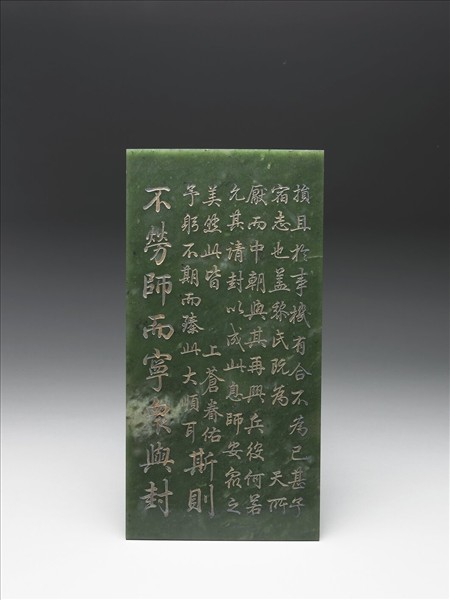 損且於事機有合不為已甚予
宿志也蓋黎氏既為 天所
厭而中朝與其再興兵役何若
允其請封以成此息師安衆之
美然此皆 上蒼眷佑
予躬不期而臻此大順耳斯則
不勞師而寧衆與封